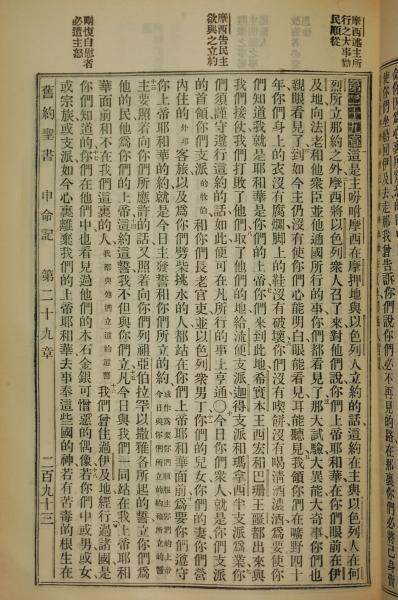 摩西述主所
行之大事勸
民順從
摩西告民主
欲與之立約
剛愎自慰者
必遭主怒
第二十九章這是主吩咐摩西在摩押地與以色列人立約的話這約在主與以色列人在何
烈所立那約之外摩西將以色列衆人召了來對他們說你們上帝耶和華在你們眼前在伊
及地向法老和他衆臣並他通國所行的事你們都看見了那大試驗大異能大奇事你們也
親眼看見了到如今主仍沒有使你們心能明白眼能看見耳能聽見我領你們在曠野四十
年你們身上的衣沒有腐爛脚上的鞋沒有破壞你們沒有喫餅沒有喝清酒濃酒爲要使你
們知道我就是耶和華是你們的上帝你們來到此地希實本王西宏和巴珊王噩都出來與
我們接仗我們打敗了他們取了他們的地給流便支派迦得支派和瑪拿西半支派爲業你
們須謹守遵行這約的話如此便可在凡所行的事上亨通○今日你們衆人就是你們支派
的首領你們支派的牧伯和你們長老官吏並以色列衆男丁你們的兒女你們的妻你們營
內住的外邦客旅以及爲你們劈柴挑水的人都站在你們上帝耶和華面前爲要你們遵守
你上帝耶和華的約就是今日主發誓和你們所立的約
主要照着向你們所應許的話又照着向你們列祖亞伯拉罕以撒雅各所起的誓立你們爲
他的民他爲你們的上帝這約這誓我不但與你們立凡今日與我們一同站在我上帝耶和
華面前和不在我們這裏的人我都與他們立這約這誓我們曾住過伊及地經行過諸國是
你們知道的你們在他們中也看見過他們的木石金銀可憎惡的偶像若你們中或男或女
或宗族或支派如今心裏離棄我們的上帝耶和華去事奉這些國的神若有苦毒的根生在
舊約聖書 申命記 第二十九章 二百九十三